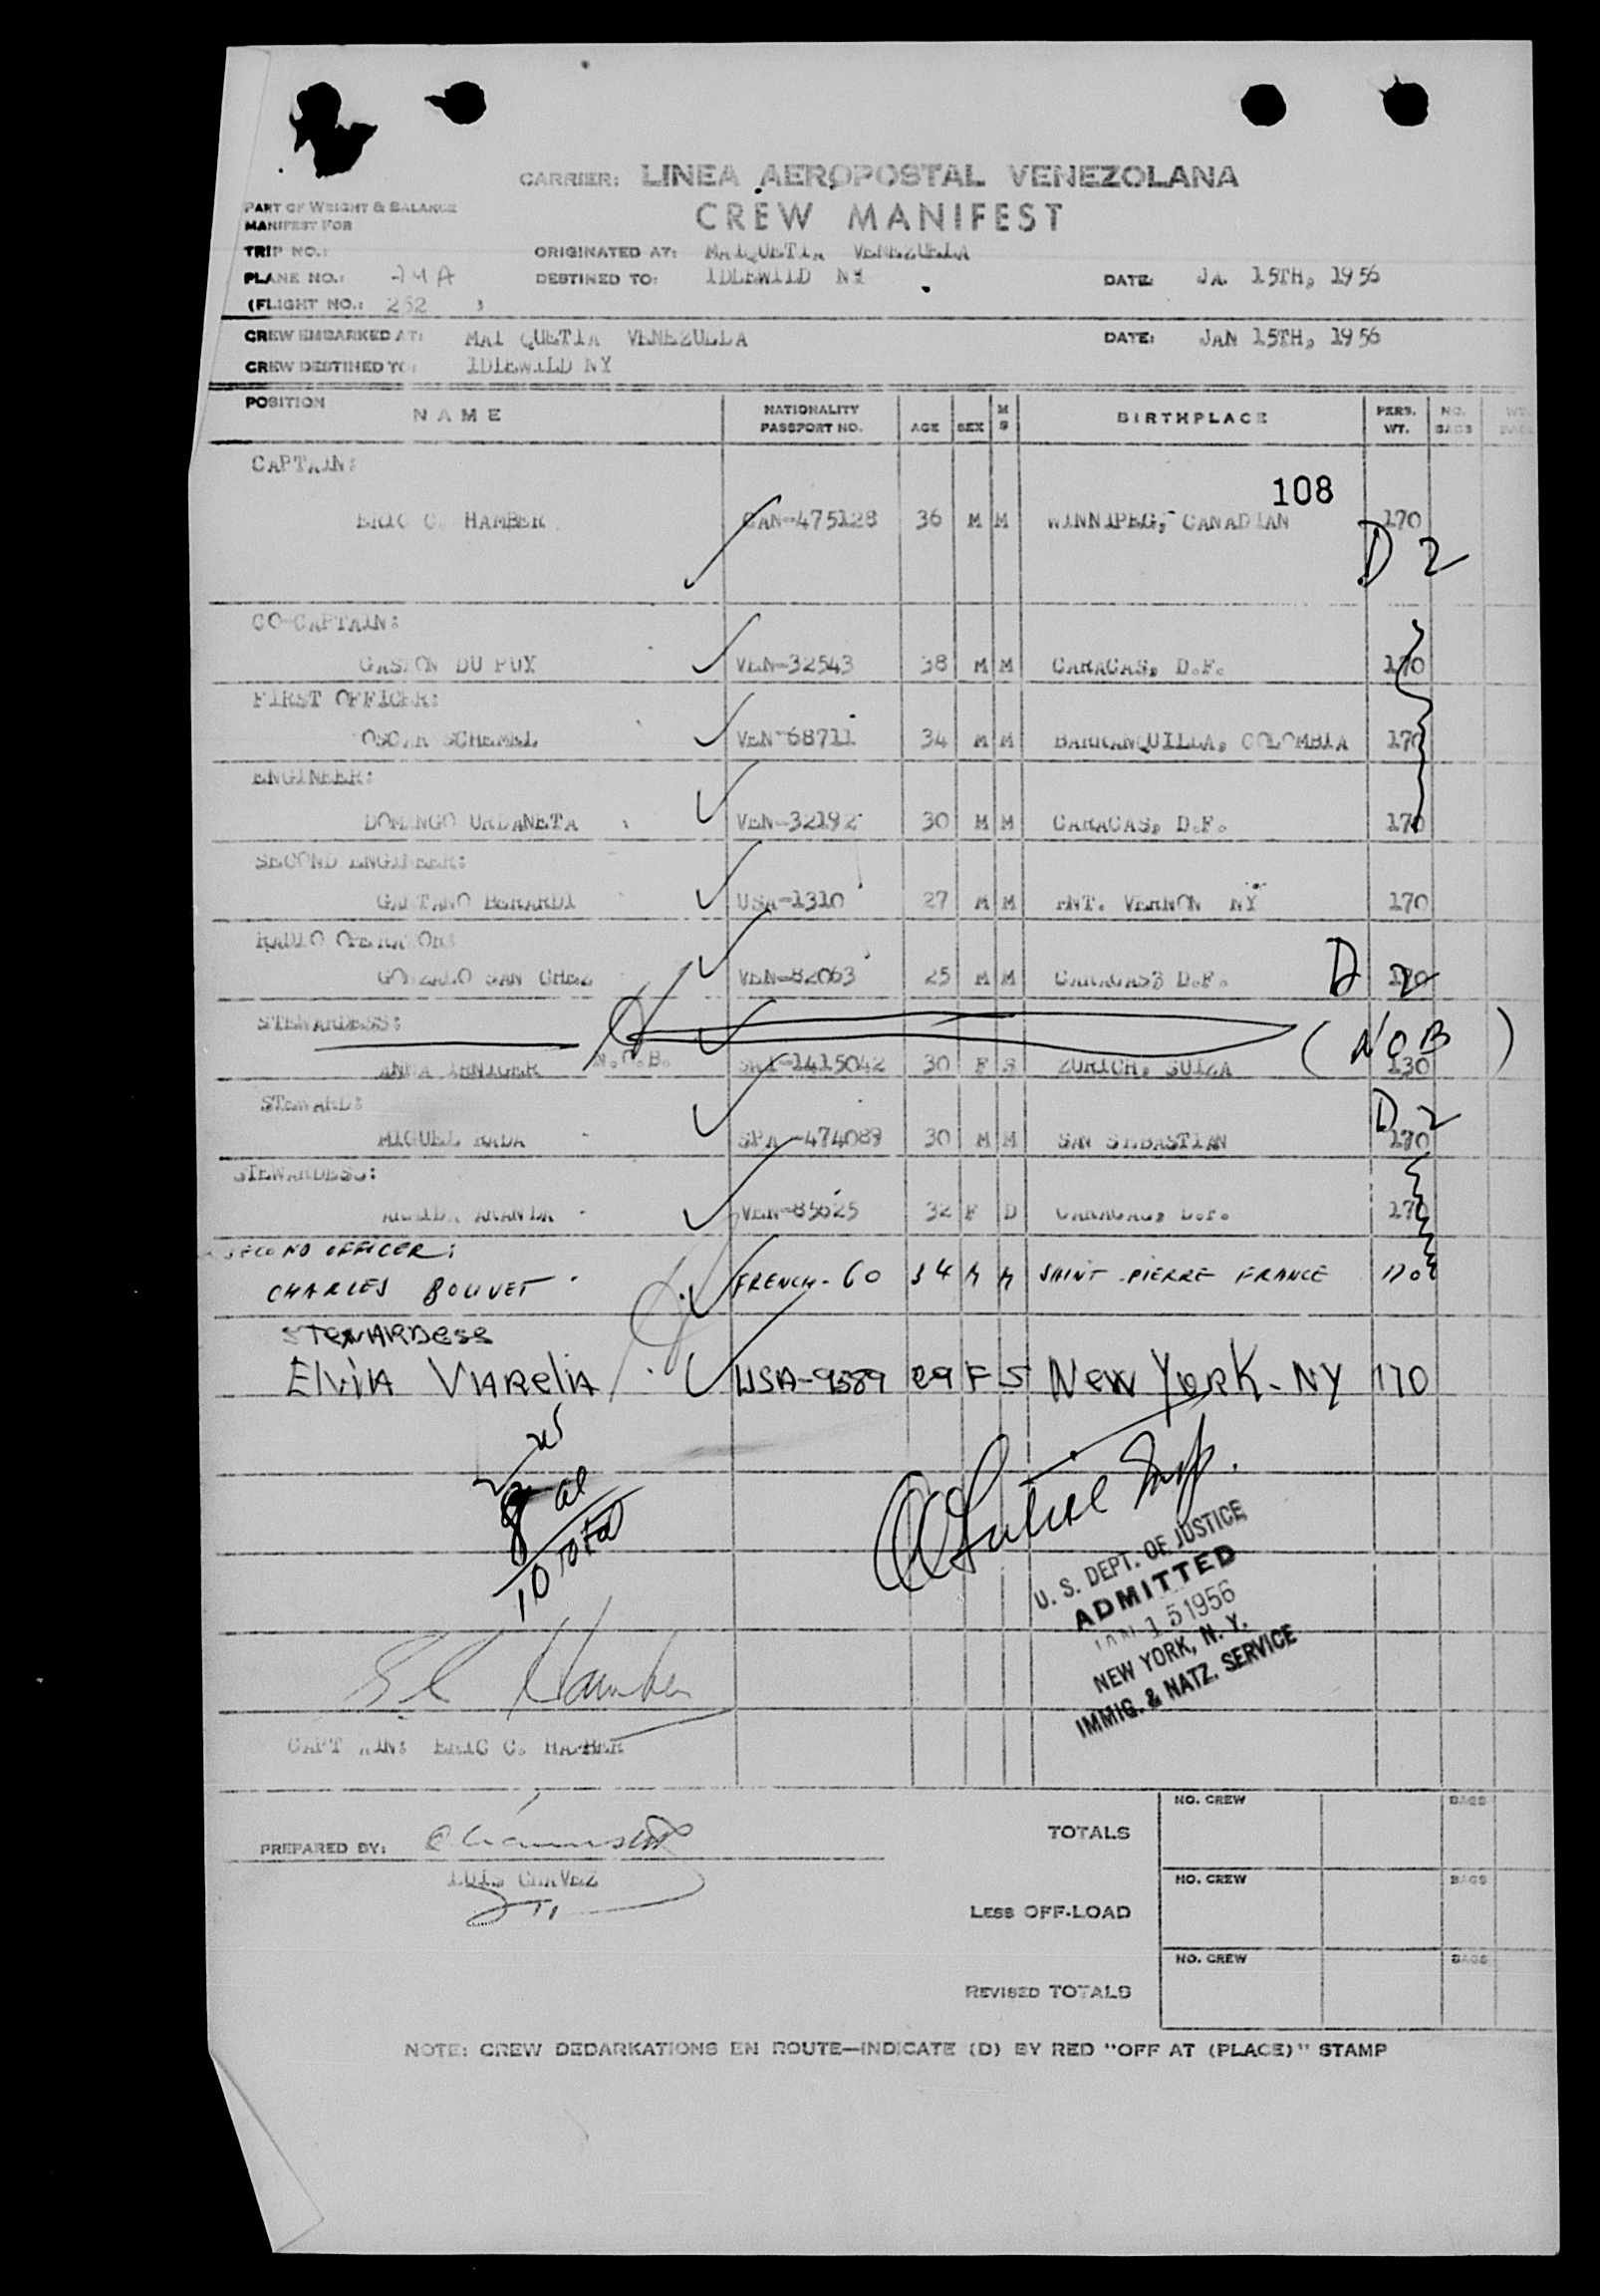 CARRIER: LINEA AEROPOSTAL VENEZOLANA
PART OF WEIGHT & BALANCE
MANIFEST FOR
CREW MANIFEST
TRIP NO.: ORIGINATED AT: MAIQUETIA VENEZUELA
PLANE NO.: AMA DESTINED TO: IDLEWILD NY DATE: JA. 15TH, 1956
(FLIGHT NO.: 252 )
CREW EMBARKED AT: MAI QUETIA VENEZUELA DATE: JAN 15TH, 1956
CREW DESTINED TO: IDLEWILD NY
POSITION NAME NATIONALITY PASSPORT NO. AGE SEX M S BIRTHPLACE PERS. WT. NO. BAGS WT.
CAPTAIN:
108
ERIC C. HAMBER CAN-475128 36 M M WINNIPEG, CANADIAN 170
D 2
CO-CAPTAIN:
GASTON DU PUY VEN-32543 38 M M CARACAS, D.F. 170
FIRST OFFICER:
OSCAR SCHEMEL VEN-68711 34 M M BARRANQUILLA, COLOMBIA 170
ENGINEER:
DOMINGO URDANETA VEN-32192 30 M M CARACAS, D.F. 170
SECOND ENGINEER:
GAETANO BERARDI USA-1310 27 M M MNT. VERNON NY 170
RADIO OPERATOR:
GONZALO SAN CHEZ VEN-82063 25 M M CARACAS D.F. D 2 170
STEWARDESS: (NOB)
ANNA N.O.B. SUI-1415042 30 F S ZURICH, SUIZA 130
STEWARD: D 2
MIGUEL RADA SPA-474089 30 M M SAN SEBASTIAN 170
STEWARDESS:
ARANDA VEN-85625 32 F D CARACAS, D.F. 170
SECOND OFFICER:
CHARLES BOUVET FRENCH-60 34 M M SAINT-PIERRE FRANCE 170
STEWARDESS
ELVIA VARELIA USA-9389 29 F S NEW YORK-NY 170
2 us
8 al
10 total
U. S. DEPT. OF JUSTICE
ADMITTED
JAN 15 1956
NEW YORK, N. Y.
IMMIG. & NATZ. SERVICE
E C Hamber
CAPT AIN: ERIC C. HAMBER
PREPARED BY:
LUIS CHAVEZ
TOTALS NO. CREW BAGS
LESS OFF-LOAD NO. CREW BAGS
REVISED TOTALS NO. CREW BAGS
NOTE: CREW DEDARKATIONS EN ROUTE—INDICATE (D) BY RED "OFF AT (PLACE)" STAMP